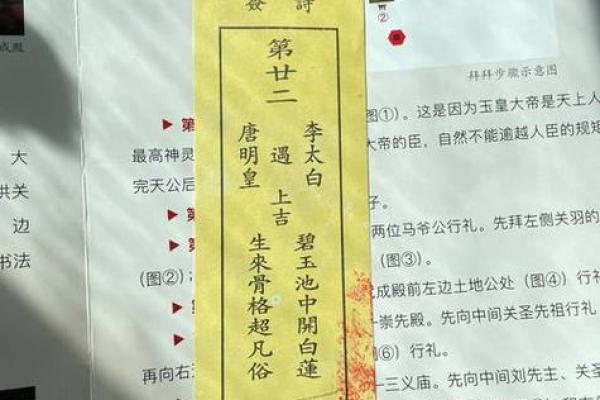 詩
簽
第廿二
李太白
遇
唐明皇
上吉
碧玉池中開白蓮
生來骨格超凡俗
成殿
大
边
书法
②
拜拜步骤示意图
第
图①）。这是因为玉皇大帝是天上人
最高神灵
大帝的臣，自然不能逾越人臣的规矩
完天公后
子。
两位马爷公行礼。先拜左侧关羽的
（图②）；
（图③）。
成殿前左边土地公处（图④）行礼
崇先殿。先向中间关圣先祖行礼
⑥）行礼。
再向右
三义庙。先向中间刘先主、关圣